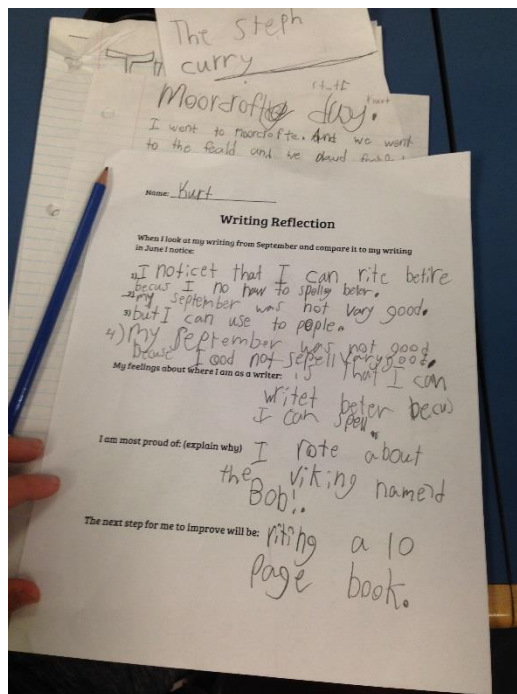 The steph
curry
Moorcrofte day.
Kurt
I went to moorcrofte. And we went
to the feald and we
Name: Kurt
Writing Reflection
When I look at my writing from September and compare it to my writing
in June I notice:
1) I noticet that I can rite betire
becus I no how to spelly beter.
2) my september was not vary good.
3) but I can use to pople.
4) my september was not good
becuse I cod not sepell vary good.
My feelings about where I am as a writer: is that I can
writet beter becus
I can spell
I am most proud of: (explain why) I rote about
the viking nameid
Bob!.
The next step for me to improve will be: riting a 10
page book.